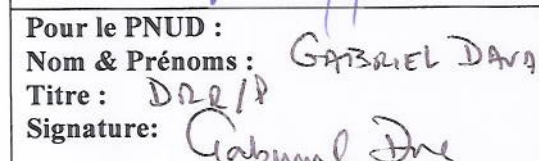 Pour le PNUD :
Nom & Prénoms : GABRIEL DAVA
Titre : DRR/P
Signature: